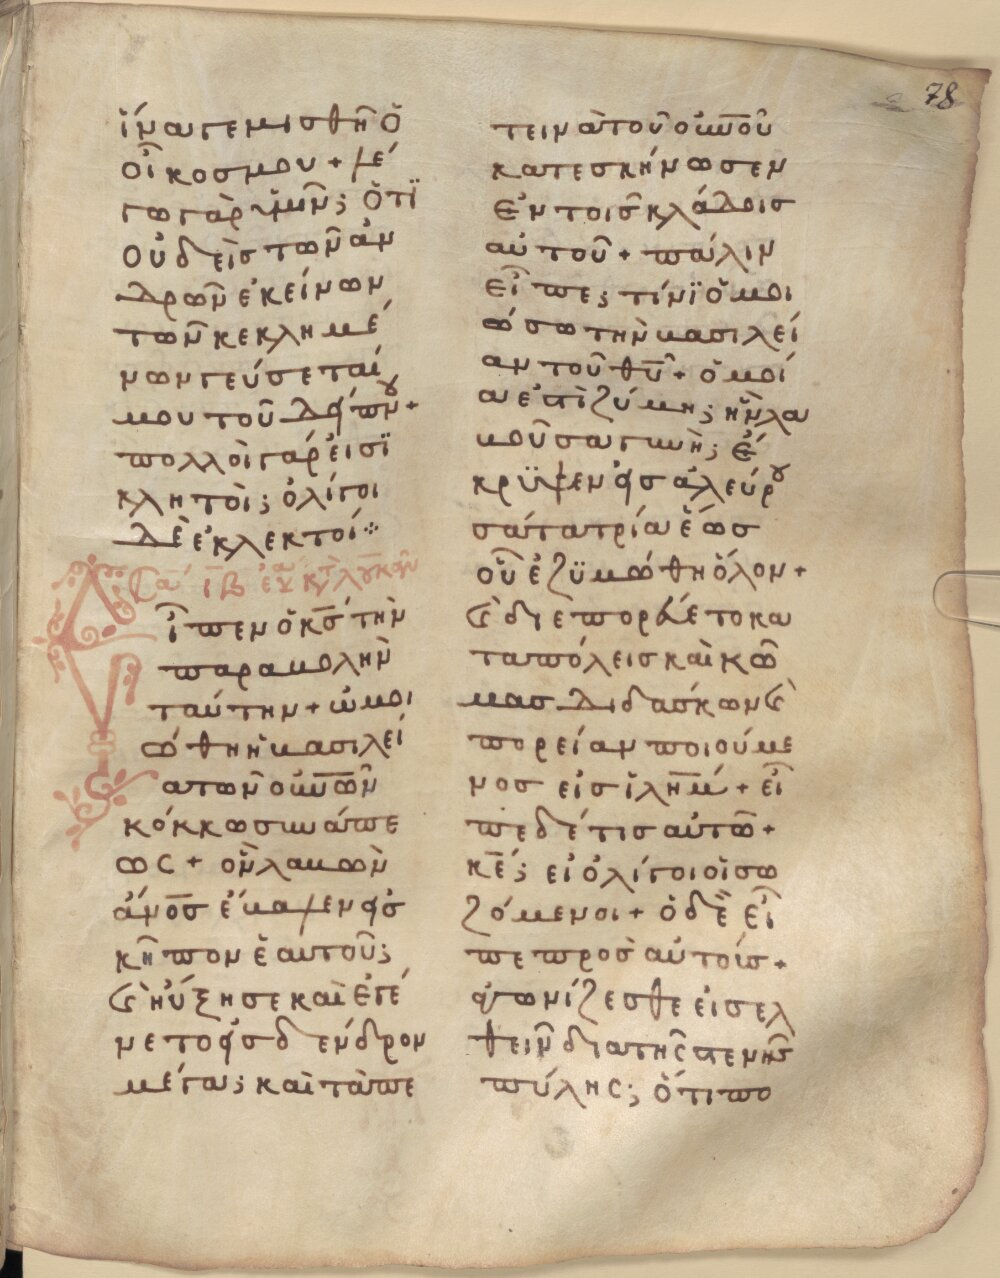 78
ἵνα γεμισθῆ ὁ
οἶκος μου + λέ
γω γὰρ ὑμῖν; ὅτι
οὐδεὶς τῶν ἀν
δρῶν ἐκείνων
τῶν κεκλημέ
νων γεύσεταί
μου τοῦ δείπνου +
πολλοὶ γάρ εἰσϊ
κλητοὶ; ὀλίγοι
δὲ ἐκλεκτοί ⁘
Σα ιβ ἐκ κτ λουκαν
Εἶπεν ὁ κς τὴν
παραβολὴν
ταύτην + ὡμοι
ώθη ἡ βασιλεί
α τῶν οὐνῶν
κόκκω σινάπε
ως + ὃν λαβὼν
ἄνος ἔβαλεν εἰς
κῆπον ἑαυτοῦ;
κ ηὔξησε καὶ ἐγέ
νετο εἰς δένδρον
μέγα; καὶ τὰ πε
τεινὰ τοῦ οὐνοῦ
κατεσκήνωσεν
ἐν τοῖς κλάδοις
αὐτοῦ + πάλιν
εἶπε; τίνϊ ὁμοι
ώσω τὴν βασιλεί
αν τοῦ θυ + ὁμοί
α ἐστὶ ζύμη; ἣν λα
βοῦσα γυνὴ; ἐ
κρϋψεν εἰς ἀλεύρου
σάτα τρία ἕως
οὗ ἐζϋμώθη ὅλον +
κ διεπορεύετο κα
τα πόλεις καὶ κώ
μας διδάσκων κ
πορείαν ποιούμε
νος εἰς ἰλημ + εἶ
πε δέ τις αὐτῶ +
κε; εἰ ὀλίγοι οἱ σω
ζόμενοι + ὁ δὲ εἶ
πε προς αὐτούς +
ἀγωνίζεσθε εἰσελ
θεῖν διὰ τῆς στενῆς
πύλης; ὅτι πο